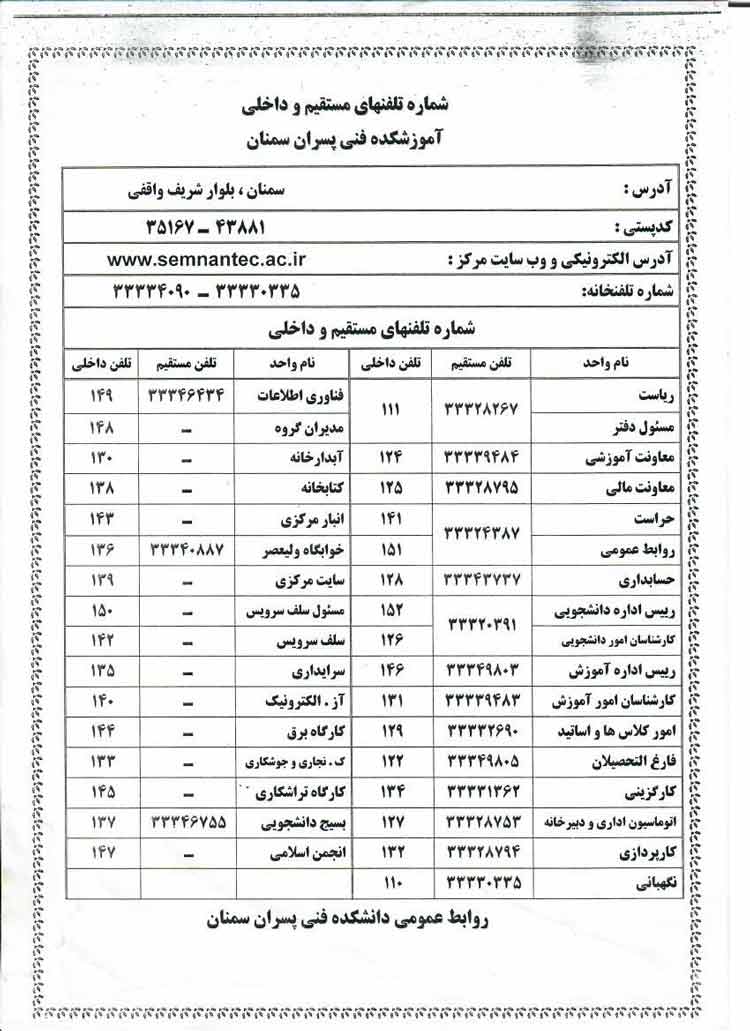 شماره تلفنهای مستقیم و داخلی
آموزشکده فنی پسران سمنان
آدرس : سمنان ، بلوار شریف واقفی
کدپستی : ۴۳۸۸۱ – ۳۵۱۶۷
آدرس الکترونیکی و وب سایت مرکز : www.semnantec.ac.ir
شماره تلفنخانه: ۳۳۳۳۰۳۳۵ – ۳۳۳۳۴۰۹۰
شماره تلفنهای مستقیم و داخلی
نام واحد تلفن مستقیم تلفن داخلی نام واحد تلفن مستقیم تلفن داخلی
ریاست ۳۳۳۲۸۲۶۷ ۱۱۱ فناوری اطلاعات ۳۳۳۴۶۴۳۴ ۱۴۹
مسئول دفتر مدیران گروه – ۱۴۸
معاونت آموزشی ۳۳۳۳۹۴۸۴ ۱۲۴ آبدارخانه – ۱۳۰
معاونت مالی ۳۳۳۲۸۷۹۵ ۱۲۵ کتابخانه – ۱۳۸
حراست ۳۳۳۲۴۳۸۷ ۱۴۱ انبار مرکزی – ۱۴۳
روابط عمومی ۱۵۱ خوابگاه ولیعصر ۳۳۳۴۰۸۸۷ ۱۳۶
حسابداری ۳۳۳۴۳۷۳۷ ۱۲۸ سایت مرکزی – ۱۳۹
رییس اداره دانشجویی ۳۳۳۲۰۳۹۱ ۱۵۲ مسئول سلف سرویس – ۱۵۰
کارشناسان امور دانشجویی ۱۲۶ سلف سرویس – ۱۴۲
رییس اداره آموزش ۳۳۳۴۹۸۰۳ ۱۴۶ سرایداری – ۱۳۵
کارشناسان امور آموزش ۳۳۳۳۹۴۸۳ ۱۳۱ آز . الکترونیک – ۱۴۰
امور کلاس ها و اساتید ۳۳۳۳۲۶۹۰ ۱۲۹ کارگاه برق – ۱۴۴
فارغ التحصیلان ۳۳۳۴۹۸۰۵ ۱۲۲ ک . نجاری و جوشکاری – ۱۳۳
کارگزینی ۳۳۳۳۱۳۶۲ ۱۳۴ کارگاه تراشکاری – ۱۴۵
اتوماسیون اداری و دبیرخانه ۳۳۳۲۸۷۵۳ ۱۲۷ بسیج دانشجویی ۳۳۳۴۶۷۵۵ ۱۳۷
کارپردازی ۳۳۳۲۸۷۹۴ ۱۳۲ انجمن اسلامی – ۱۴۷
نگهبانی ۳۳۳۳۰۳۳۵ ۱۱۰
روابط عمومی دانشکده فنی پسران سمنان